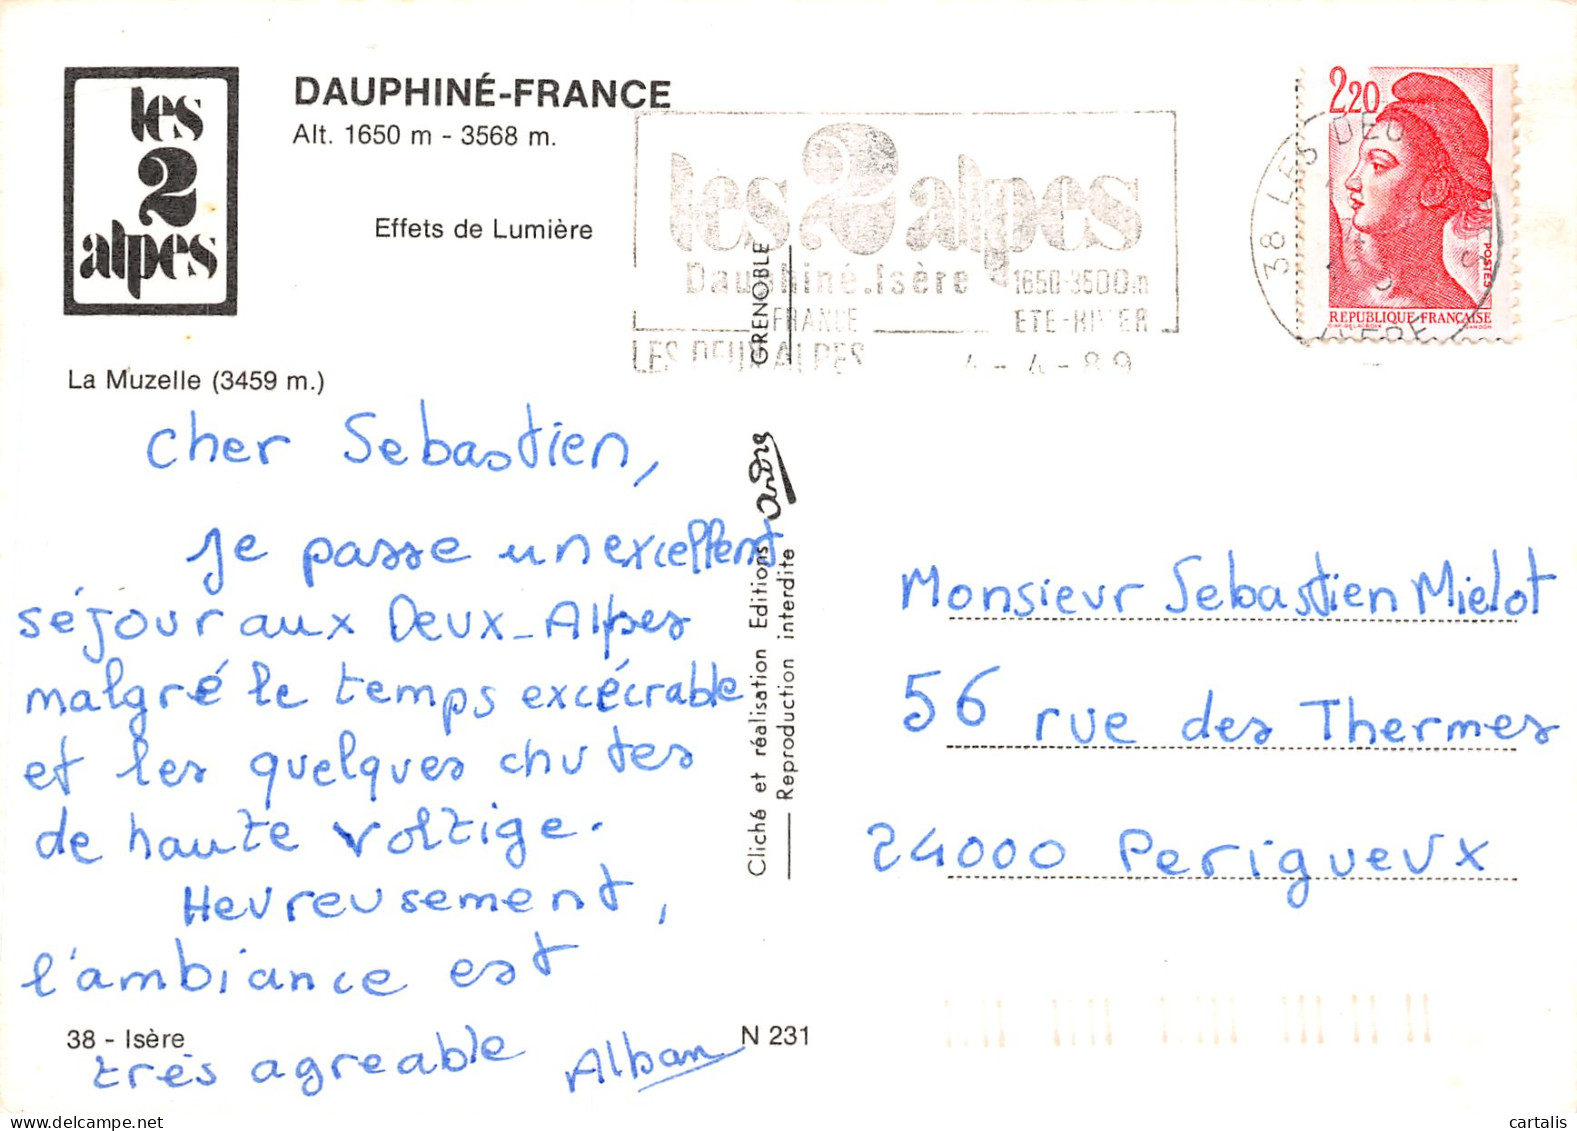 les
2
alpes
DAUPHINÉ-FRANCE
Alt. 1650 m - 3568 m.
Effets de Lumière
La Muzelle (3459 m.)
les 2 alpes
Dauphiné.Isère 1650-3500m
FRANCE ETE-HIVER
LES DEUX ALPES 4-4-89
2,20
POSTES
RÉPUBLIQUE FRANÇAISE
38 LES DEUX
ISERE
Cher Sebastien,
Je passe un excellent
séjour aux Deux-Alpes
malgré le temps excécrable
et les quelques chutes
de haute voltige.
Heureusement,
l'ambiance est
très agreable Alban
38 - Isère
N 231
GRENOBLE
Cliché et réalisation Editions
Reproduction interdite
Monsieur Sebastien Mielot
56 rue des Thermes
24000 Perigueux
cartalis